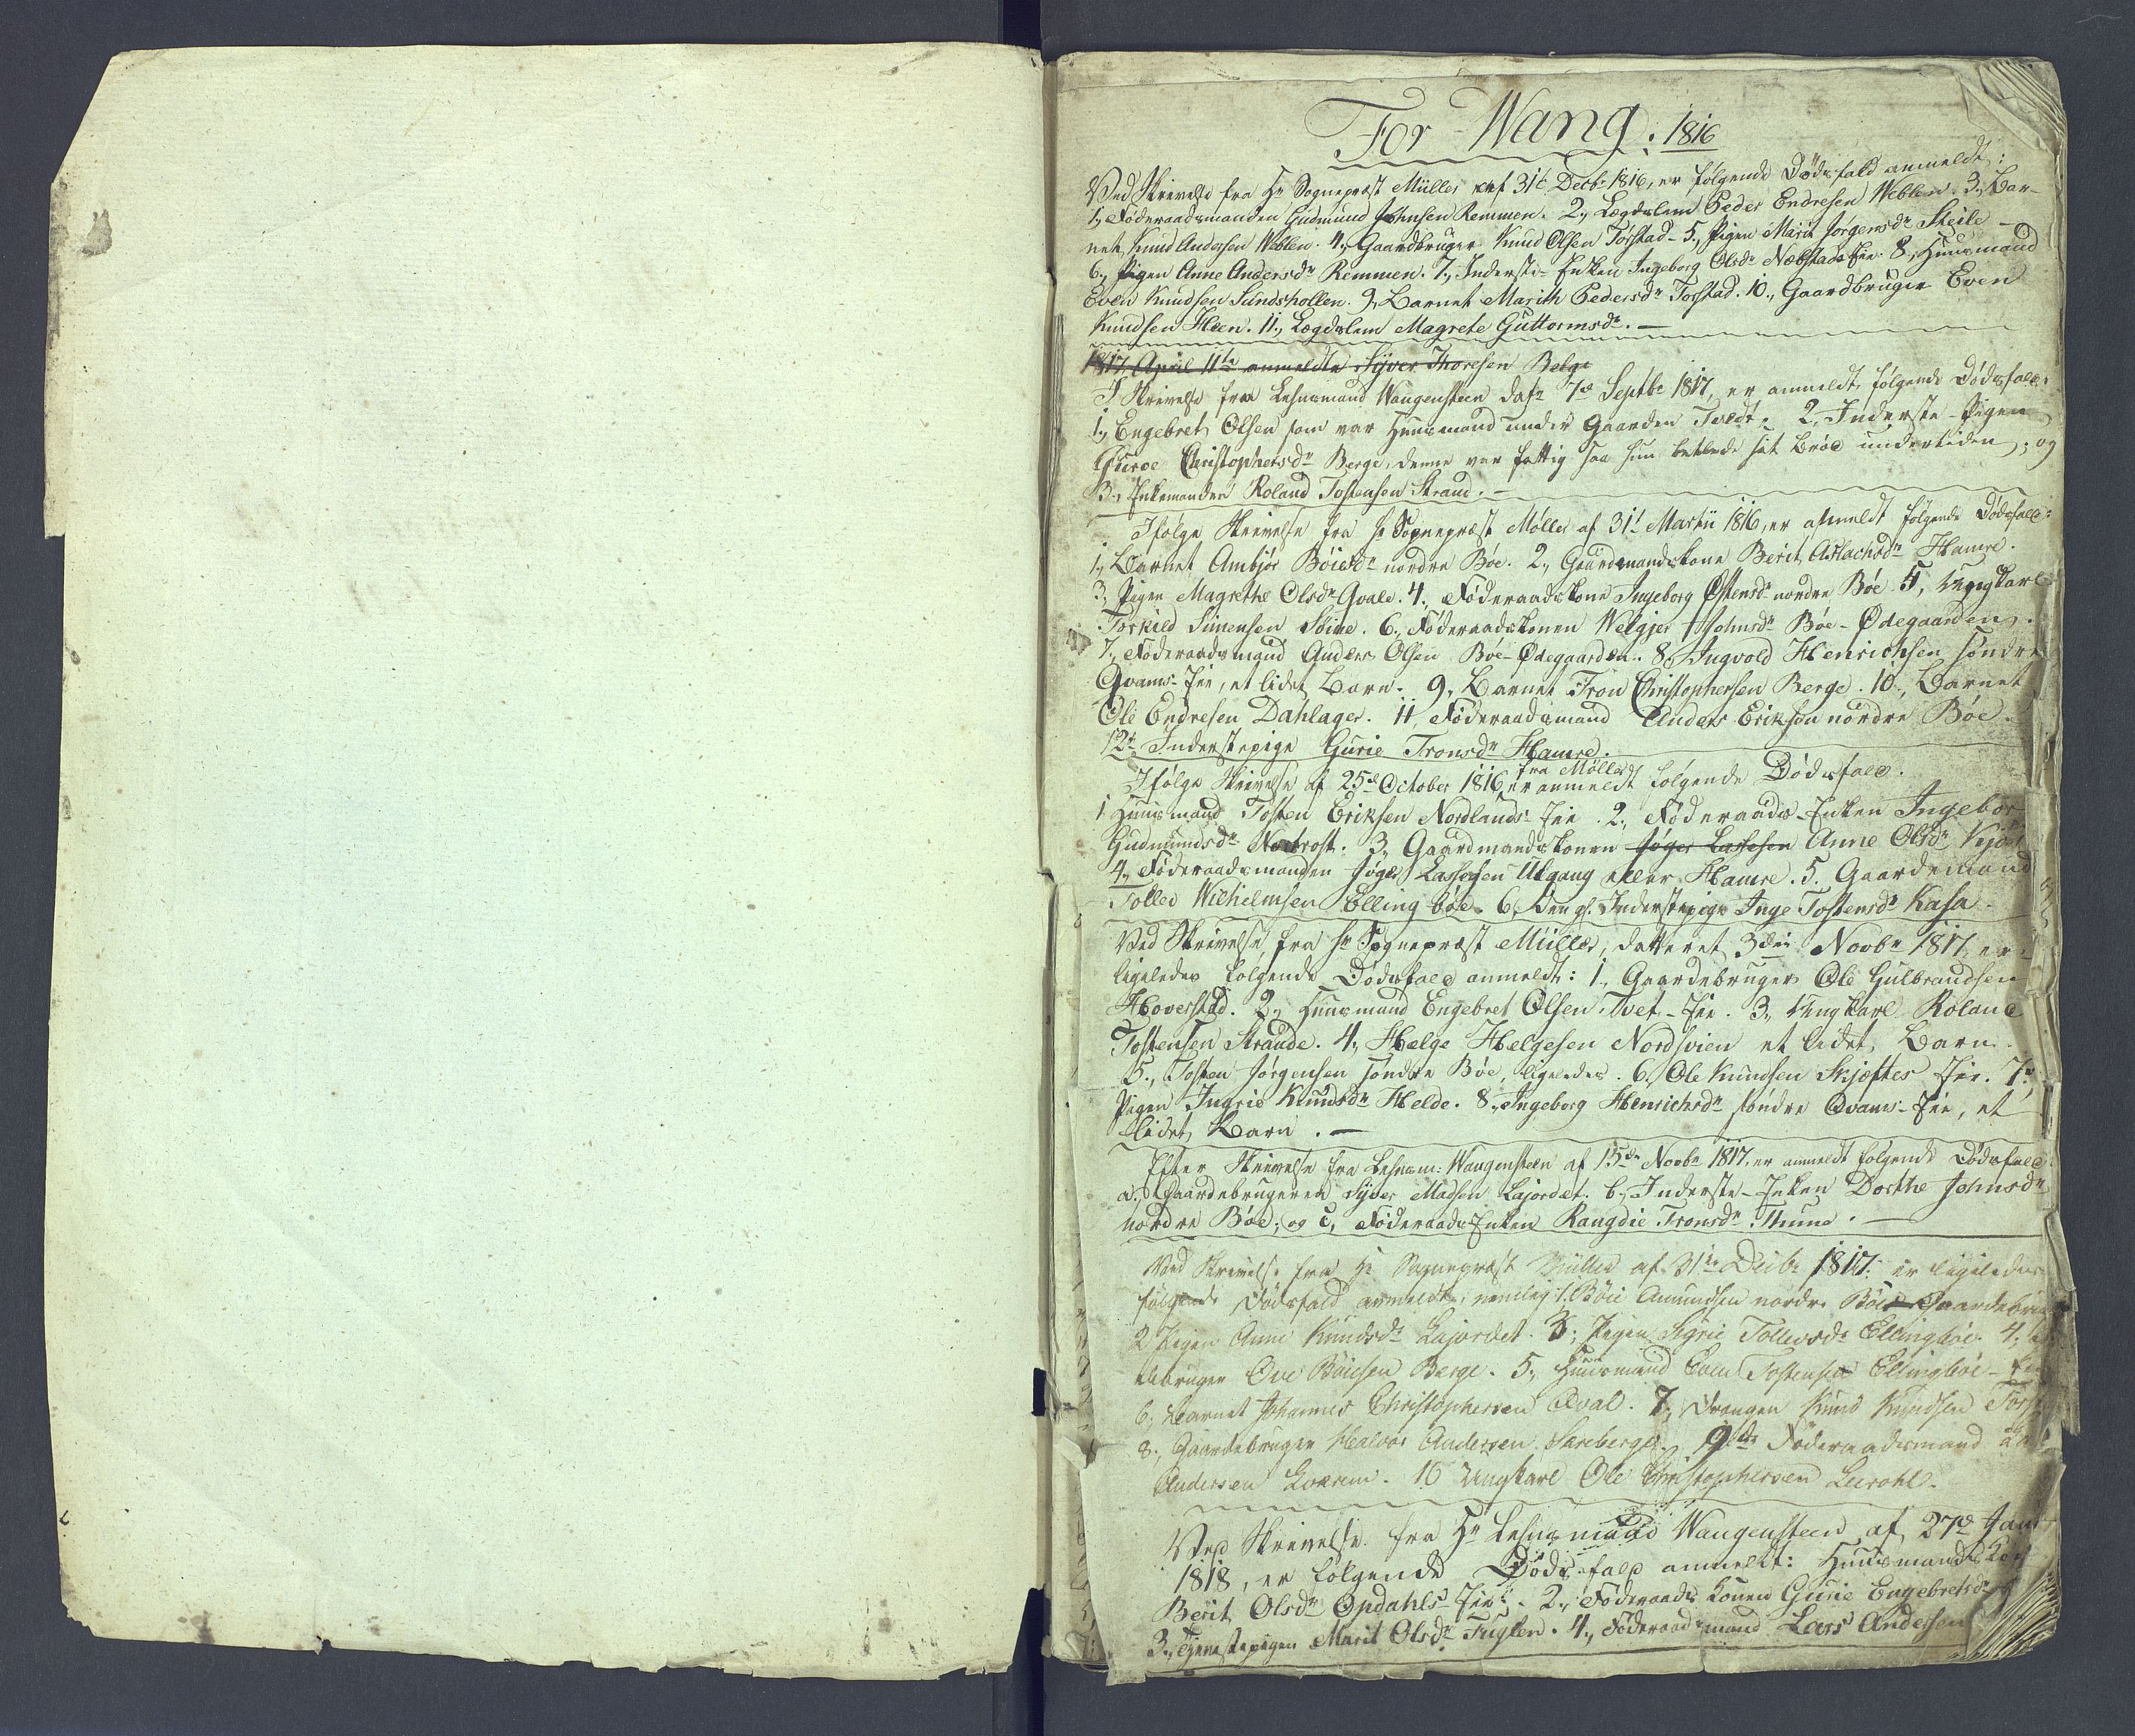 For Wang. 1816
Ved Skrivelse fra Hr Sognepræst Müller af 31te Decbr 1816, er følgende Dødsfald anmeldt:
1., Føderaadsmanden Gudmund Johnsen Remmen. 2., Lægdslem Peder Endresen Weblen. 3., Bar-
net Knud Andersen Weblen. 4., Gaardbruger Knud Olsen Torstad. 5., Pigen Marit Jørgensdr Skeile
6., Pigen Anne Andersdr Remmen. 7., Inderste-Enken Ingeborg Olsdr Nebstads Eie. 8., Huusmand
Even Knudsen Sundshollen. 9., Barnet Marith Pedersdr Torstad. 10., Gaardbruger Even
Knudsen Heen. 11., Lægdslem Magrete Guttormsdr. —
1817. April 11te anmeldte Syver Thoresen Belge
I Skrivelse fra Lehnsmand Wangensteen dat. 7de Septbr 1817, er anmeldt følgende Dødsfald:
1., Engebret Olsen som var Huusmand under Gaarden Tvedt. 2., Inderste-Pigen
Guroe Christophersdr Berge, denne var fattig saa hun betlede sit Brød undertiden, og
3., Enkemanden Roland Tostensen Strand. —
Ifølge Skrivelse fra Hr Sognepræst Møller af 31t Martii 1816, er anmeldt følgende Dødsfald:
1., Barnet Ambjør Bøiesdr nordre Bøe. 2., Gaardmandskone Berit Aslachsdr Hamre.
3., Pigen Magrethe Olsdr Qvale. 4., Føderaadskone Ingeborg Østensdr nordre Bøe. 5., Ungkarl
Torkild Simensen Søine. 6., Føderaadskonen Welgjer Johnsdr Bøe-Ødegaarden.
7., Føderaadsmand Anders Olsen Bøe-Ødegaarden. 8., Ingvold Henrichsen søndre
Qvams-Eie, et lidet Barn. 9., Barnet Tron Christophersen Berge. 10., Barnet
Ole Endresen Dahlager. 11., Føderaadsmand Anders Erikson nordre Bøe.
12te Inderstepige Gurie Tronsdr Hamre.
Ifølge Skrivelse af 25de October 1816 fra Møller er anmeldt følgende Dødsfald.
1 Huusmand Tosten Eriksen Nordlands-Eie. 2., Føderaads-Enken Ingebor
Gudmundsdr Nordrost. 3., Gaardmandskonen Jøger Lassesen Anne Olsdr
4., Føderaadsmanden Jøger Lassesen Udgang eller Hamre. 5. Gaardemand
Tolled Wilhelmsen Ellingbøe. 6., Den gl. Inderstepige Inge Tostensdr Kasa.
Ved Skrivelse fra Hr Sognepræst Müller, datteret 3die Novbr 1817 er
ligeledes følgende Dødsfald anmeldt: 1., Gaardebruger Ole Gulbrandsen
Hoverstad. 2., Huusmand Engebret Olsen Tvet-Eie. 3., Ungkarl Roland
Tostensen Strande. 4., Helge Helgesen Nordsvien et lidet Barn.
5., Tosten Jørgensen søndre Bøe, ligeledes. 6., Ole Knudsen Skjeftes Eie. 7.,
Pigen Ingrie Knudsdr Helde. 8., Ingeborg Henrichsdr søndre Qvams-Eie, et
lidet Barn. —
Efter Skrivelse fra Lehnsm: Wangensteen af 15de Novbr 1817, er anmeldt følgende Dødsfald:
a., Gaardebrugeren Syver Madsen Lajordet. b., Inderste-Enken Dorthe Johnsdr
nordre Bøe; og c., Føderaads Enken Rangdie Tronsdr Thune. —
Ved Skrivelse fra Hr Sognepræst Müller af 31te Decbr 1817 er ligeledes
følgende Dødsfald anmeldt, nemlig 1. Bøie Amundsen nordre Bøe
2 Pigen Anne Knudsdr Lajordet. 3., Pigen Sigrie Tollevsdr Ellingbøe. 4.,
debruger Ove Bøiesen Berge. 5., Huusmand Even Tostensen Ellingbøe-
6., Barnet Johannes Christophersen Qval. 7., Drengen Knud Knudsen
8., Gaardebruger Halvor Andersen Skreberge. 9de Føderaadsmand
Andersen Qvam. 10 Ungkarl Ole Christophersen Leirohl.
Ved Skrivelse fra Hr Lehnsmand Wangensteen af 27de Jan
1818, er følgende Dødsfald anmeldt: Huusmandskone
Berit Olsdr Opdahls-Eie. 2., Føderaads Konen Gurie Engebretsdr
3., Tjenestepigen Marit Olsdr Fuglen. 4., Føderaadsmand Lars Andersen